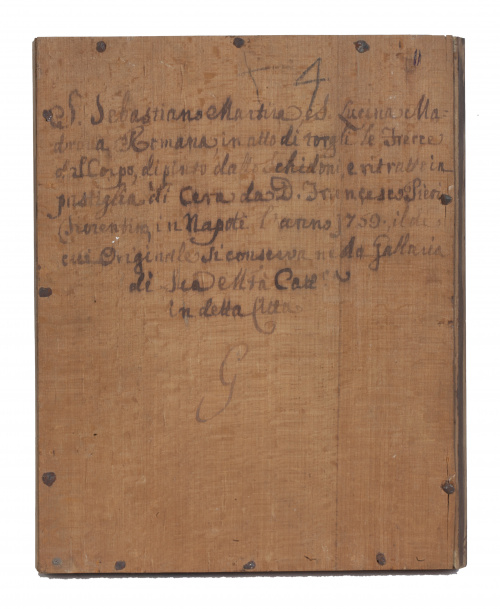 4
S. Sebastiano Martire e S. Lucina Ma=
trona Romana in atto di torgli le Frecce
dal Corpo, dipinto dallo Schidoni, e ritratto in
pastiglia di Cera da D. Francesco
Fiorentino in Napoli l'anno 1739. il di
cui Originale si conserva nella Gallaria
di Sua
in detta Città
G